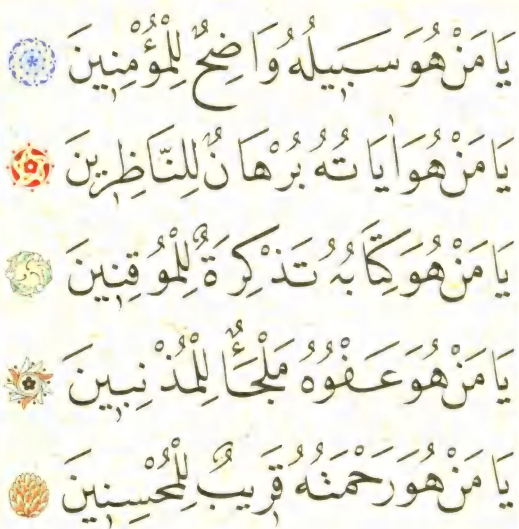 يَا مَنْ هُوَ سَبِيلُهُ وَاضِحٌ لِلْمُؤْمِنِينَ
يَا مَنْ هُوَ اٰيَاتُهُ بُرْهَانٌ لِلنَّاظِرِينَ
يَا مَنْ هُوَ كِتَابُهُ تَذْكِرَةٌ لِلْمُوقِنِينَ
يَا مَنْ هُوَ عَفْوُهُ مَلْجَأٌ لِلْمُذْنِبِينَ
يَا مَنْ هُوَ رَحْمَتُهُ قَرِيبٌ لِلْمُحْسِنِينَ